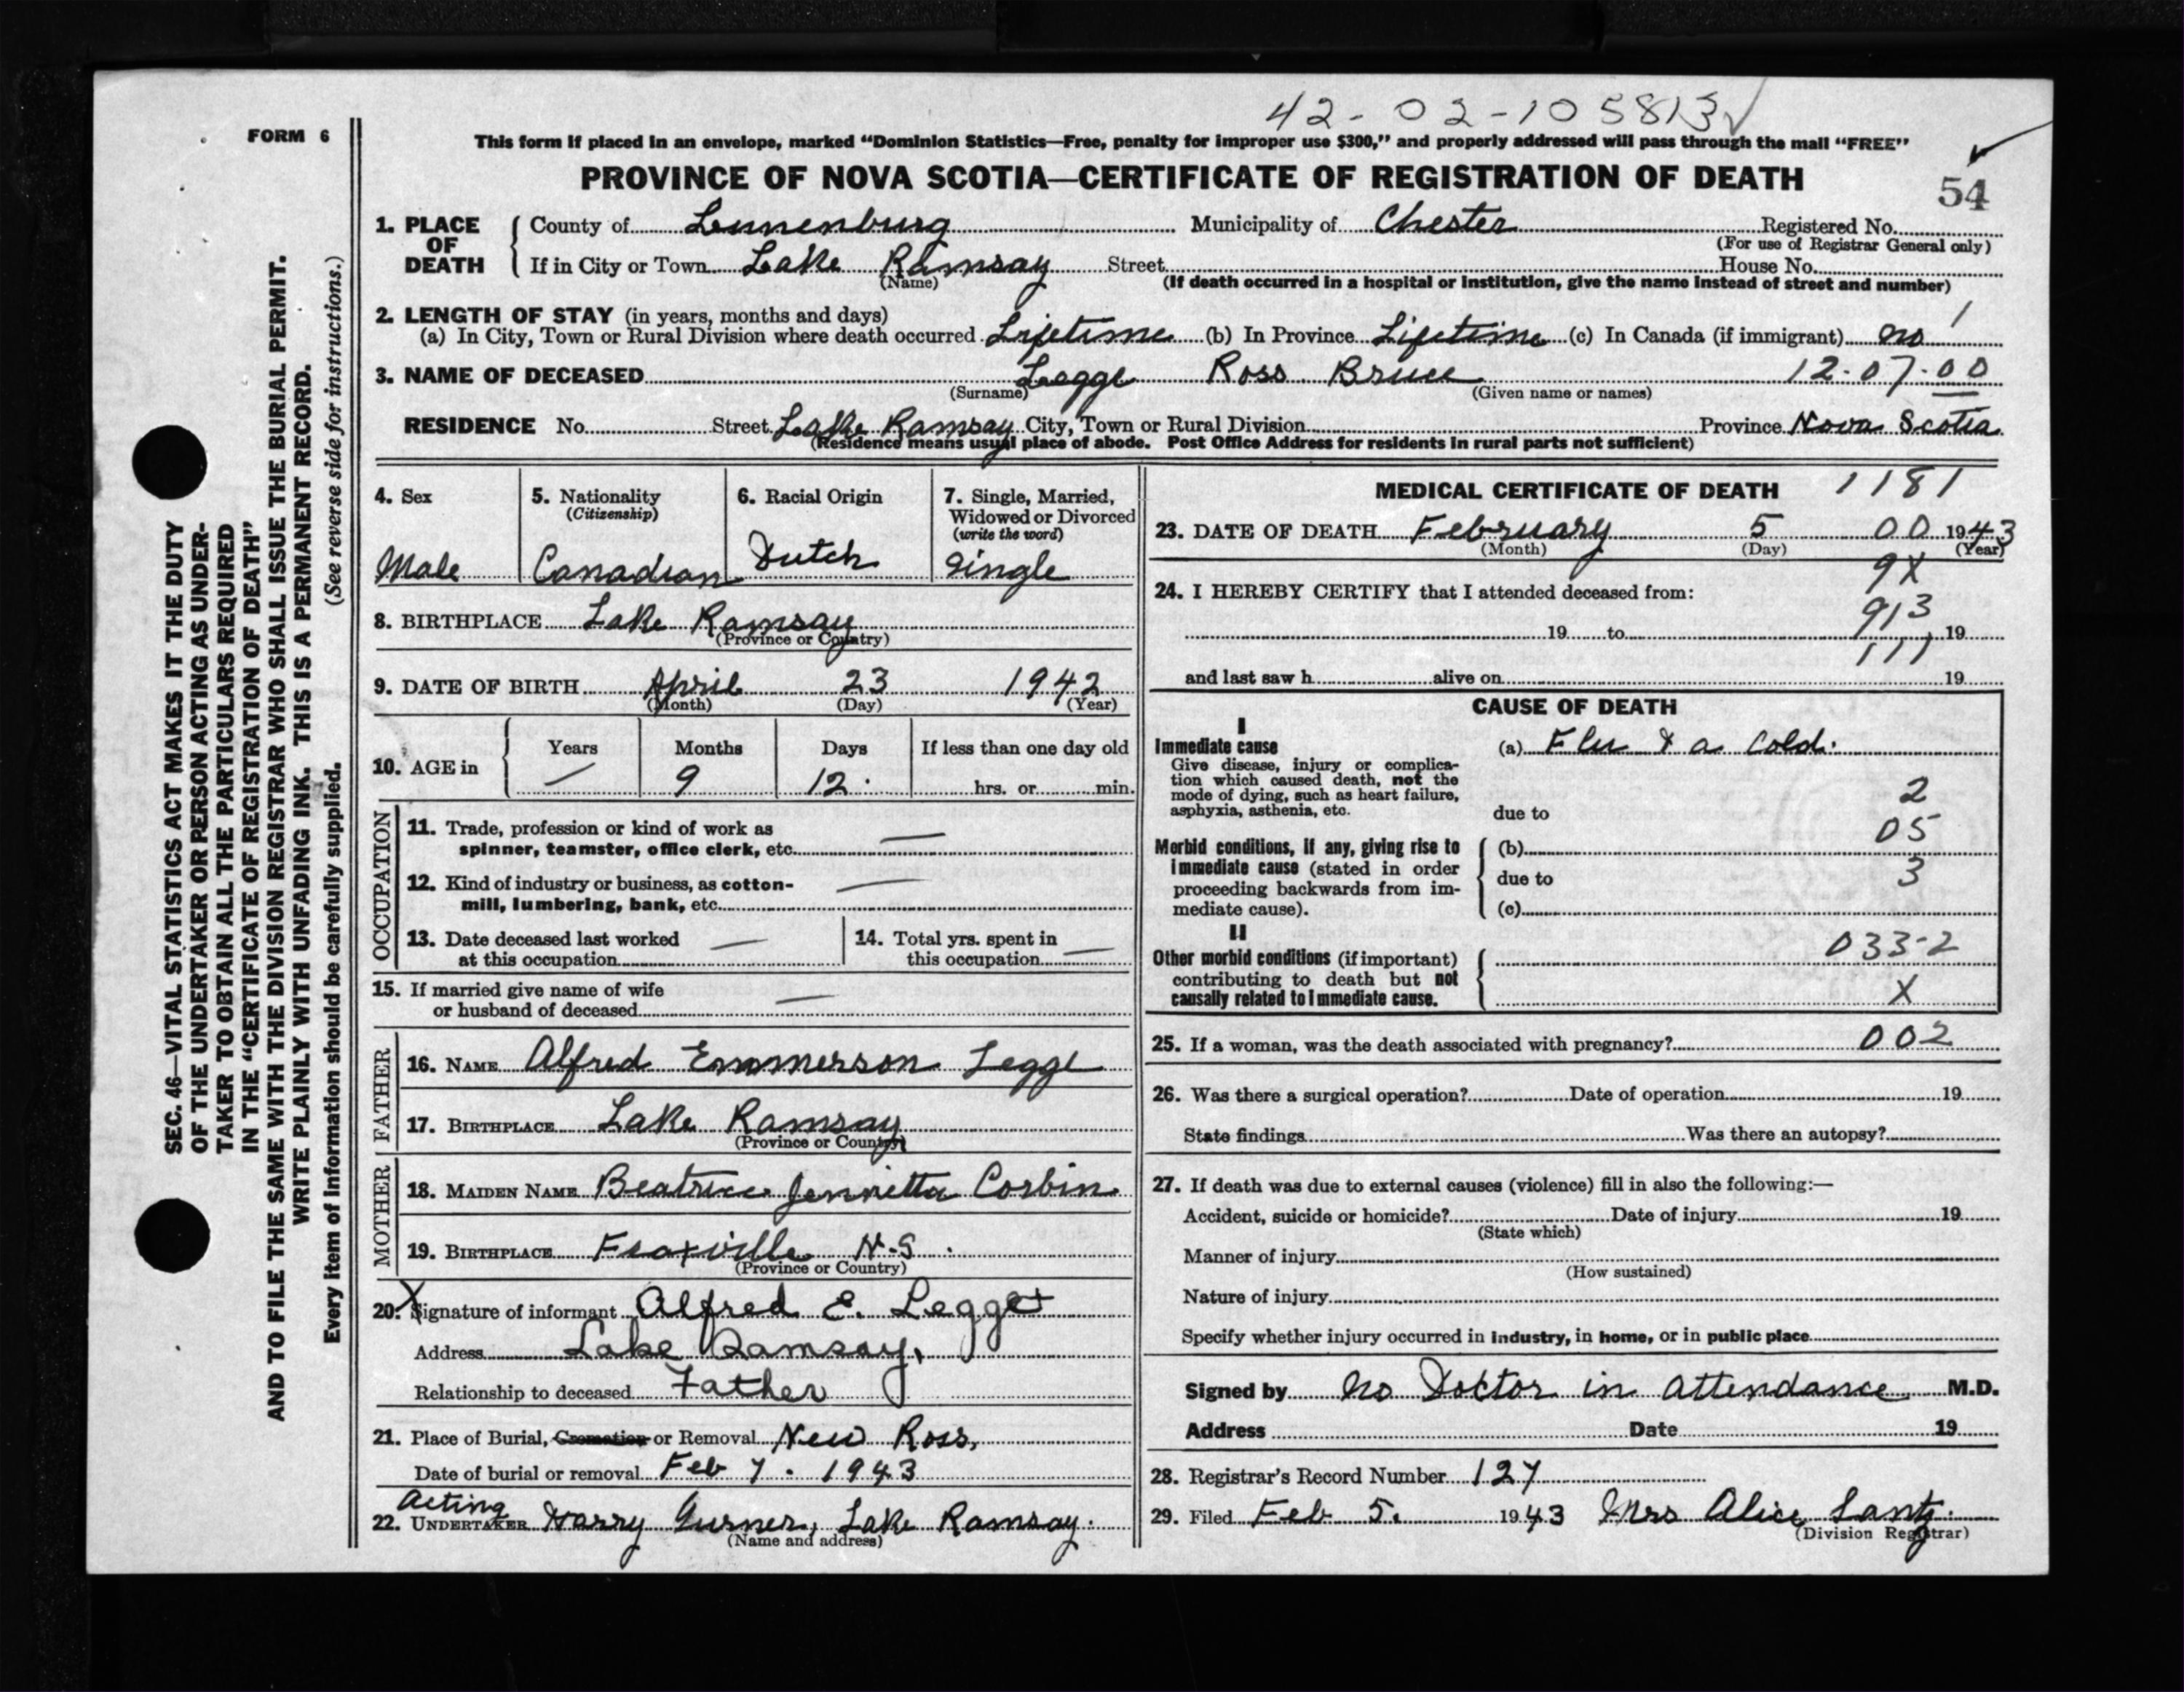 42-02-105813
FORM 6
This form if placed in an envelope, marked “Dominion Statistics—Free, penalty for improper use $300,” and properly addressed will pass through the mail “FREE”
PROVINCE OF NOVA SCOTIA—CERTIFICATE OF REGISTRATION OF DEATH
54
1. PLACE OF DEATH
County of Lunenburg Municipality of Chester Registered No.
(For use of Registrar General only)
If in City or Town Lake Ramsay Street House No.
(Name) (If death occurred in a hospital or institution, give the name instead of street and number)
2. LENGTH OF STAY (in years, months and days) 1
(a) In City, Town or Rural Division where death occurred Lifetime (b) In Province Lifetime (c) In Canada (if immigrant) no
3. NAME OF DECEASED Legge Ross Bruce 12-07-00
(Surname) (Given name or names)
RESIDENCE No. Street Lake Ramsay City, Town or Rural Division Province Nova Scotia
(Residence means usual place of abode. Post Office Address for residents in rural parts not sufficient)
4. Sex
Male
5. Nationality
(Citizenship)
Canadian
6. Racial Origin
Dutch
7. Single, Married,
Widowed or Divorced
(write the word)
Single
8. BIRTHPLACE Lake Ramsay
(Province or Country)
9. DATE OF BIRTH April 23 1942
(Month) (Day) (Year)
10. AGE in
Years Months Days If less than one day old
— 9 12 hrs. or min.
OCCUPATION
11. Trade, profession or kind of work as —
spinner, teamster, office clerk, etc.
12. Kind of industry or business, as cotton- —
mill, lumbering, bank, etc.
13. Date deceased last worked —
at this occupation
14. Total yrs. spent in
this occupation —
15. If married give name of wife —
or husband of deceased
FATHER
16. NAME Alfred Emmerson Legge
17. BIRTHPLACE Lake Ramsay
(Province or Country)
MOTHER
18. MAIDEN NAME Beatrice Jennetta Corbin
19. BIRTHPLACE N.S.
(Province or Country)
20. X Signature of informant Alfred E. Legge
Address Lake Ramsay,
Relationship to deceased Father
21. Place of Burial, Cremation or Removal New Ross,
Date of burial or removal Feb 7. 1943
Acting
22. UNDERTAKER Harry Lake Ramsay.
(Name and address)
MEDICAL CERTIFICATE OF DEATH 1181
23. DATE OF DEATH February 5 00 1943
(Month) (Day) (Year)
9X
24. I HEREBY CERTIFY that I attended deceased from:
913
19 to 19
111
and last saw h alive on 19
CAUSE OF DEATH
I
Immediate cause (a) Flu & a Cold.
Give disease, injury or complica-
tion which caused death, not the
mode of dying, such as heart failure,
asphyxia, asthenia, etc.
2
due to
05
Morbid conditions, if any, giving rise to
immediate cause (stated in order
proceeding backwards from im-
mediate cause).
(b)
due to 3
(c)
II
Other morbid conditions (if important)
contributing to death but not
causally related to immediate cause.
033-2
X
25. If a woman, was the death associated with pregnancy? 002
26. Was there a surgical operation? Date of operation 19
State findings Was there an autopsy?
27. If death was due to external causes (violence) fill in also the following:—
Accident, suicide or homicide? Date of injury 19
(State which)
Manner of injury
(How sustained)
Nature of injury
Specify whether injury occurred in industry, in home, or in public place
Signed by No Doctor in attendance. M.D.
Address Date 19
28. Registrar's Record Number 127
29. Filed Feb 5. 1943 Mrs Alice Lantz.
(Division Registrar)
SEC. 46—VITAL STATISTICS ACT MAKES IT THE DUTY
OF THE UNDERTAKER OR PERSON ACTING AS UNDER-
TAKER TO OBTAIN ALL THE PARTICULARS REQUIRED
IN THE “CERTIFICATE OF REGISTRATION OF DEATH”
AND TO FILE THE SAME WITH THE DIVISION REGISTRAR WHO SHALL ISSUE THE BURIAL PERMIT.
WRITE PLAINLY WITH UNFADING INK. THIS IS A PERMANENT RECORD.
Every item of information should be carefully supplied. (See reverse side for instructions.)